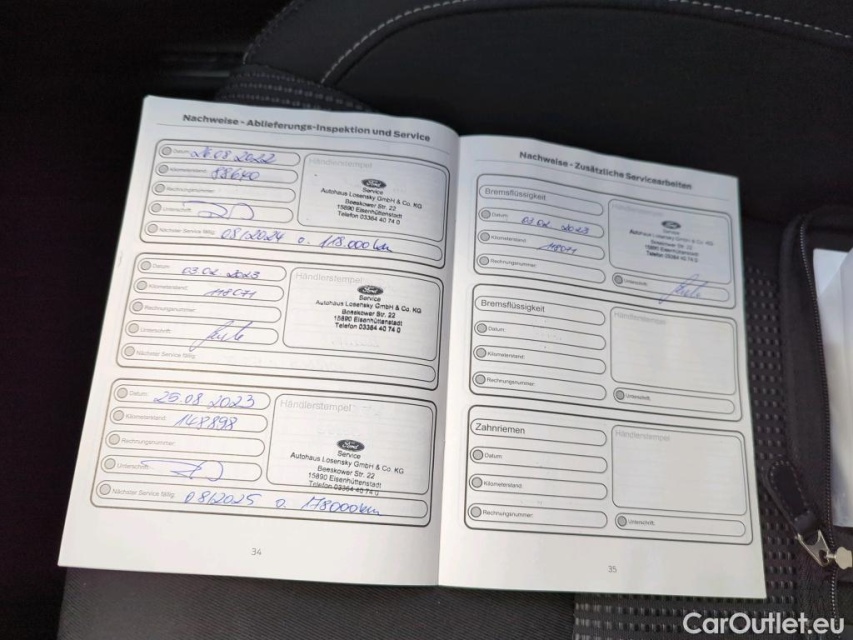 Nachweise - Ablieferungs-Inspektion und Service
Datum: 26.08.2022
Kilometerstand: 88640
Rechnungsnummer:
Unterschrift:
Nächster Service fällig: 08/2024 o. 118.000 km
Händlerstempel
Ford
Service
Autohaus Losensky GmbH & Co. KG
Beeskower Str. 22
15890 Eisenhüttenstadt
Telefon 03364 40 74 0
Datum: 03.02.2023
Kilometerstand: 118071
Rechnungsnummer:
Unterschrift:
Nächster Service fällig:
Händlerstempel
Ford
Service
Autohaus Losensky GmbH & Co. KG
Beeskower Str. 22
15890 Eisenhüttenstadt
Telefon 03364 40 74 0
Datum: 25.08.2023
Kilometerstand: 148898
Rechnungsnummer:
Unterschrift:
Nächster Service fällig: 08/2025 o. 178000 km
Händlerstempel
Ford
Service
Autohaus Losensky GmbH & Co. KG
Beeskower Str. 22
15890 Eisenhüttenstadt
Telefon 03364 40 74 0
34
Nachweise - Zusätzliche Servicearbeiten
Bremsflüssigkeit
Datum: 03.02.2023
Kilometerstand: 118071
Rechnungsnummer:
Ford
Service
Autohaus Losensky GmbH & Co. KG
Beeskower Str. 22
15890 Eisenhüttenstadt
Telefon 03364 40 74 0
Unterschrift:
Bremsflüssigkeit
Datum:
Kilometerstand:
Rechnungsnummer:
Händlerstempel
Unterschrift:
Zahnriemen
Datum:
Kilometerstand:
Rechnungsnummer:
Händlerstempel
Unterschrift:
35
CarOutlet.eu